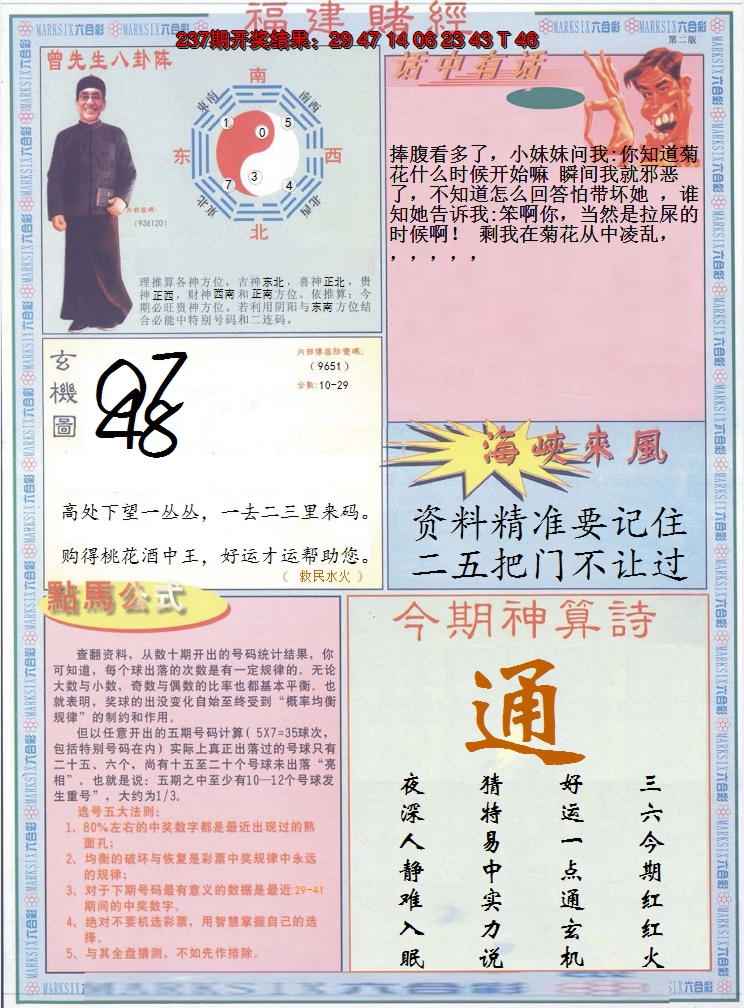 福建賭經
237期开奖结果：29 47 14 06 23 43 T 46
MARKSIX六合彩
第二版
曾先生八卦阵
南
东南
南西
1
0
5
东
西
7
3
4
东北
北西
北
内部密碼:
(936120)
理推算各神方位，吉神东北，喜神正北，贵
神正西，财神西南和正南方位。依推算：今
期必旺贵神方位。若利用阴阳与东南方位结
合必能中特别号码和二连码。
话中有话
捧腹看多了，小妹妹问我:你知道菊
花什么时候开始嘛 瞬间我就邪恶
了，不知道怎么回答怕带坏她 ，谁
知她告诉我:笨啊你，当然是拉屎的
时候啊！ 剩我在菊花从中凌乱，
，，，，，
玄機圖
97
48
（9651）
合数:10-29
高处下望一丛丛，一去二三里来码。
购得桃花酒中王，好运才运帮助您。
（ 救民水火 ）
海峽來風
资料精准要记住
二五把门不让过
點馬公式
查翻资料，从数十期开出的号码统计结果，你
可知道，每个球出落的次数是有一定规律的。无论
大数与小数，奇数与偶数的比率也都基本平衡。也
就表明，奖球的出没变化自始至终受到“概率均衡
规律”的制约和作用。
但以任意开出的五期号码计算（5X7=35球次，
包括特别号码在内）实际上真正出落过的号球只有
二十五、六个，尚有十五至二十个号球未出落“亮
相”。也就是说：五期之中至少有10—12个号球发
生重号”，大约为1/3。
选号五大法则：
1、80%左右的中奖数字都是最近出现过的熟
面孔；
2、均衡的破坏与恢复是彩票中奖规律中永远
的规律；
3、对于下期号码最有意义的数据是最近29-41
期间的中奖数字。
4、绝对不要机选彩票，用智慧掌握自己的选
择。
5、与其全盘猜测，不如先作排除。
今期神算詩
通
三六今期红红火
好运一点通玄机
猜特易中实力说
夜深人静难入眠